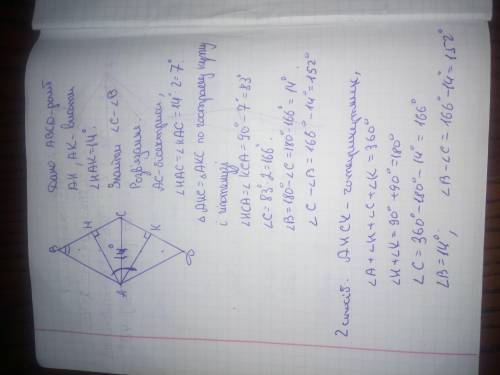 Дано ABCD-ромб
AH і AK висоти
∠HAK=14°.
Знайти ∠C-∠B
Розв'язання.
AC-бісектриси,
∠HAC=∠KAC=14°:2=7°.
△AHC=△AKC по гострому куту
і гіпотенузі
∠HCA=∠KCA=90°-7°=83°
∠C=83°·2=166°.
∠B=180°-∠C=180-166°=14°
∠C-∠B=166°-14°=152°
B
H
C
A
14°
K
D
2 спосіб. AHCK - чотирикутник,
∠A+∠H+∠C+∠K=360°
∠H+∠K=90°+90°=180°
∠C=360°-180°-14°=166°
∠B=14°; ∠B-∠C=166°-14°=152°